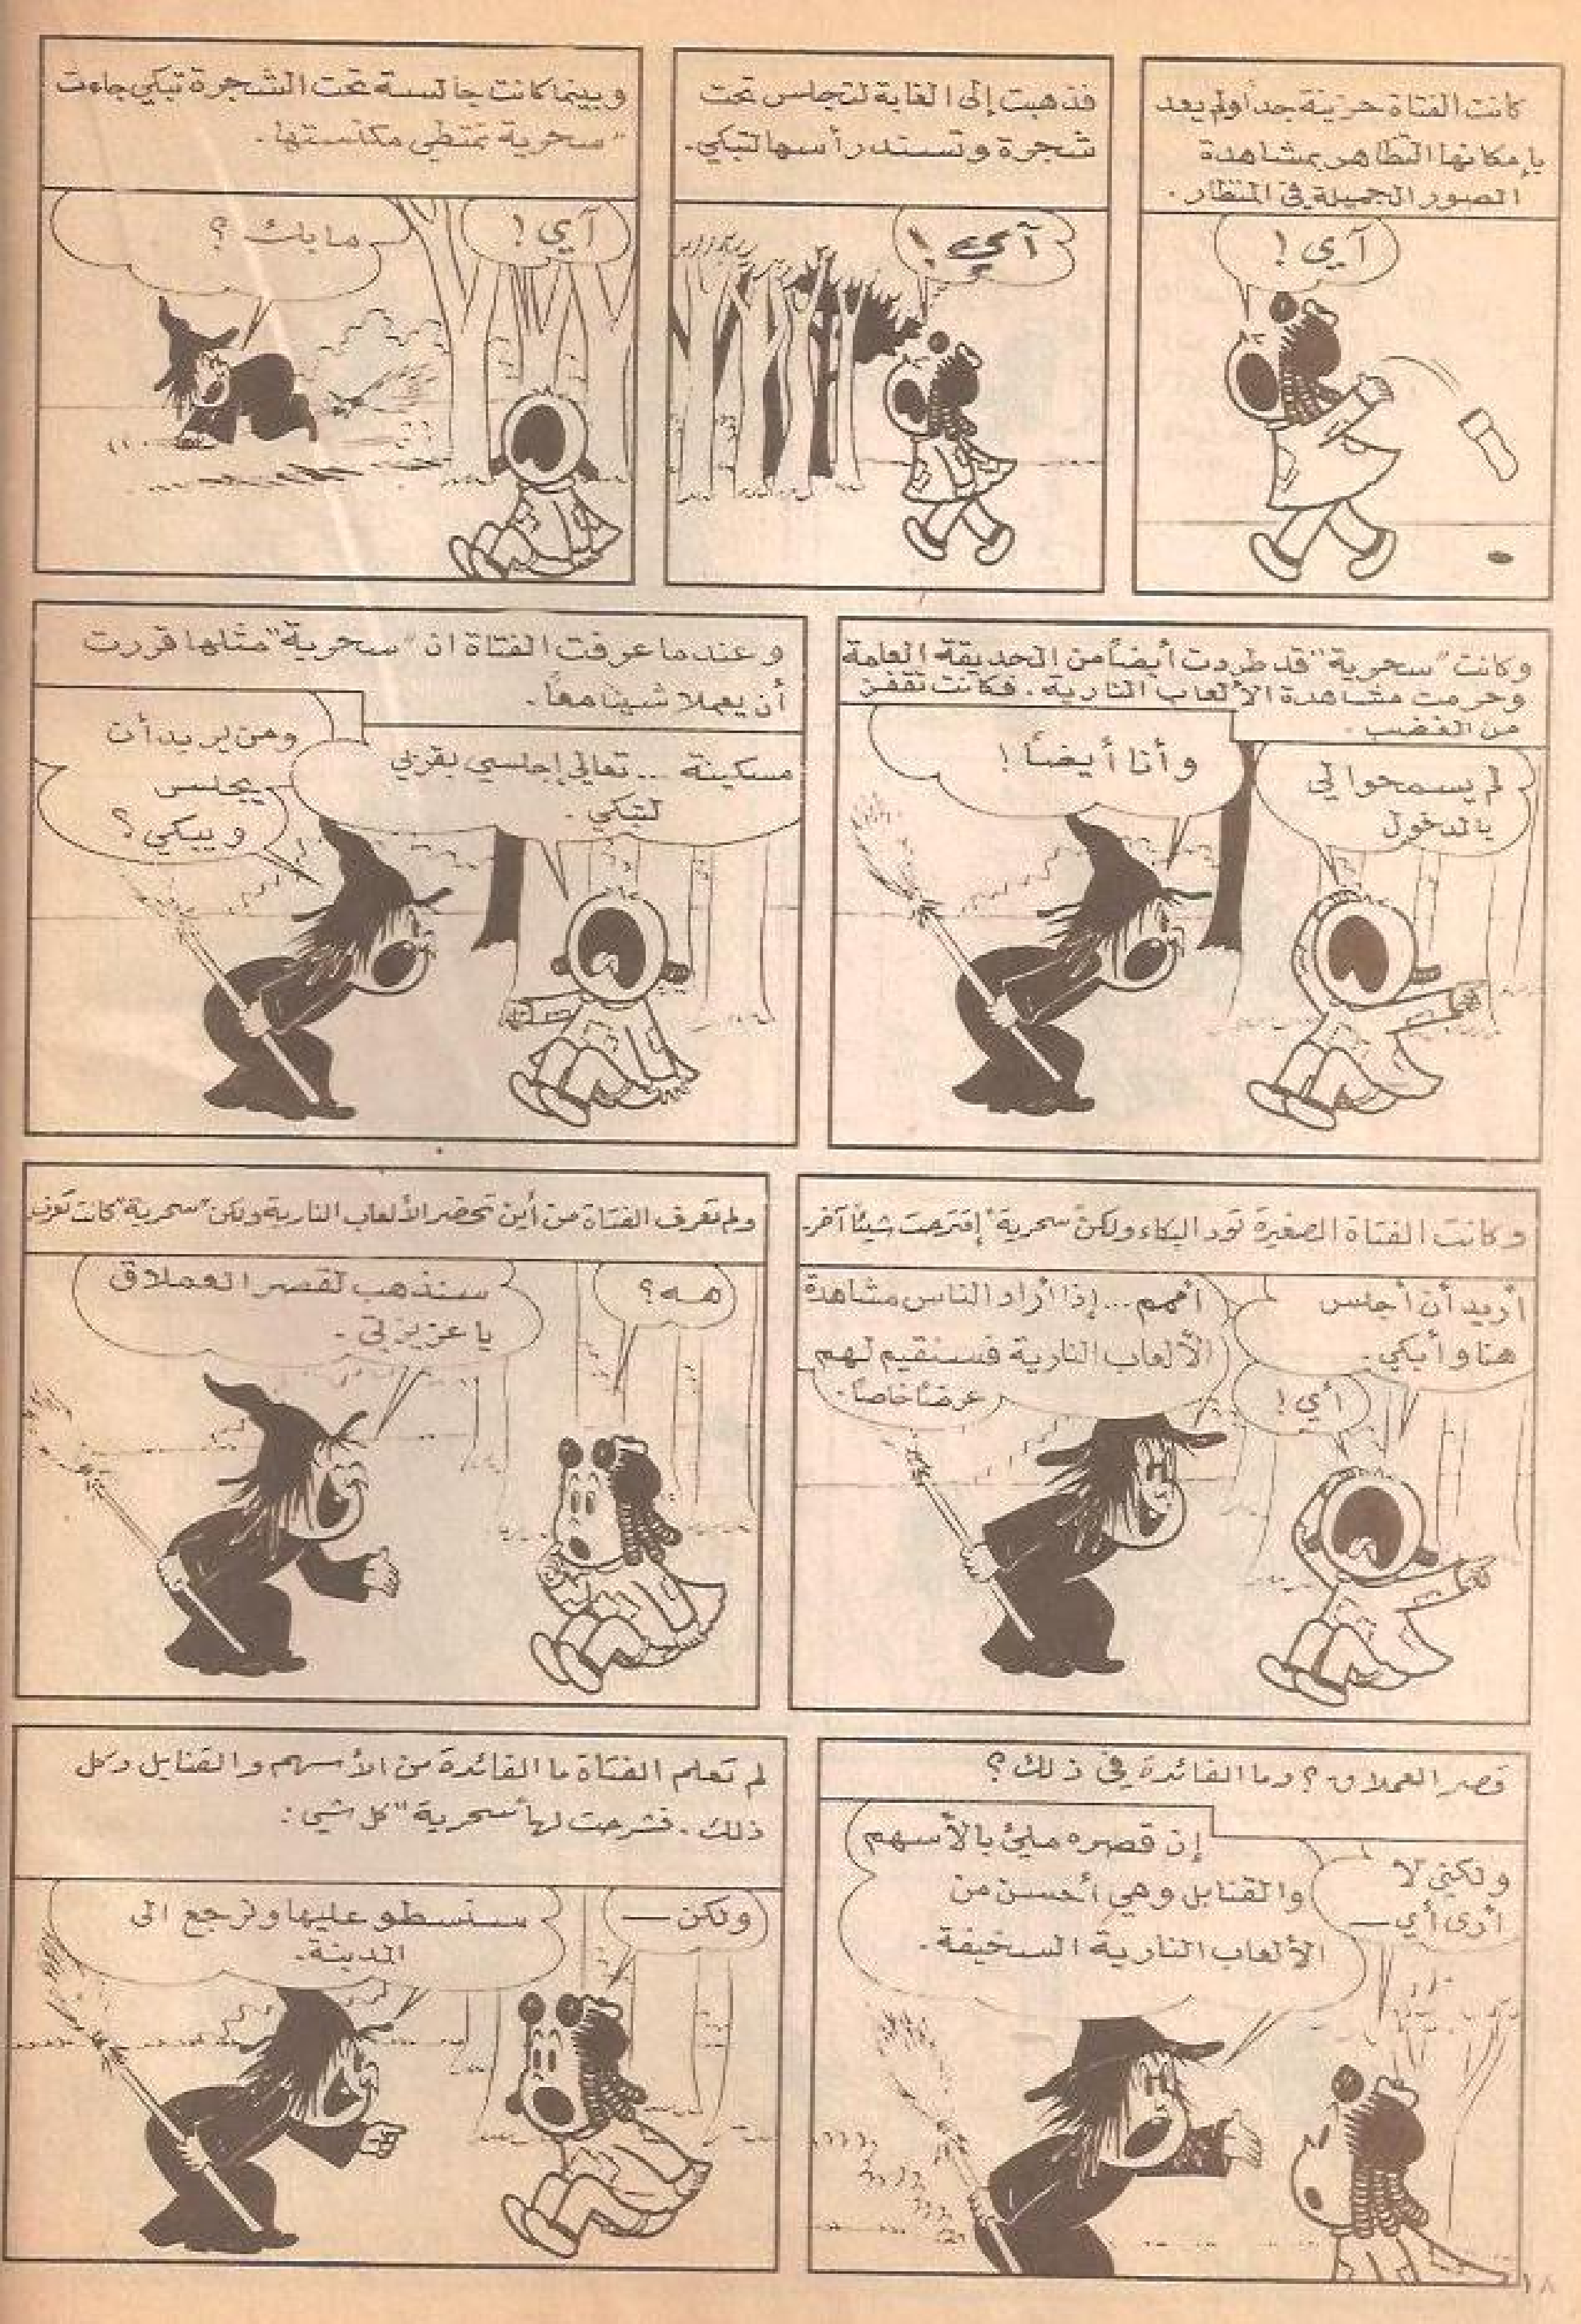 كانت الفتاة حزينة جداً ولم يعد
بإمكانها التظاهر بمشاهدة
الصور الجميلة في المنظار.
آيي!
فذهبت إلى الغابة لتجلس تحت
شجرة وتسند رأسها لتبكي.
آيي!
وبينما كانت جالسة تحت الشجرة تبكي جاءت
"سحرية تمتطي مكنستها.
آيي!
مابك؟
وكانت "سحرية" قد طردت أيضاً من الحديقة العامة
وحرمت مشاهدة الألعاب النارية. فكانت تقفز
من الغضب.
لم يسمحوا لي
بالدخول
وأنا أيضاً!
وعندما عرفت الفتاة ان "سحرية" مثلها قررت
أن يعملا شيئا معاً.
مسكينة ... تعالي إجلسي بقربي
لنبكي.
ومن يريد أن
يجلس
ويبكي؟
وكانت الفتاة الصغيرة تود البكاء ولكن "سحرية" إقترحت شيئاً آخر.
أريد أن أجلس
هنا وأبكي.
أيي!
أممم... إذا أراد الناس مشاهدة
الألعاب النارية فسنقيم لهم
عرضاً خاصاً.
ولم تعرف الفتاة من أين تحضر الألعاب النارية ولكن "سحرية" كانت تعرف
هه؟
سنذهب لقصر العملاق
يا عزيزتي.
قصر العملاق؟ وما الفائدة في ذلك؟
ولكني لا
أرى أي —
إن قصره مليئ بالأسهم
والقنابل وهي أحسن من
الألعاب النارية السخيفة.
لم تعلم الفتاة ما الفائدة من الأسهم والقنابل وكل
ذلك. فشرحت لها "سحرية" كل شيئ:
ولكن —
سنسطو عليها ونرجع الى
المدينة.
١٨